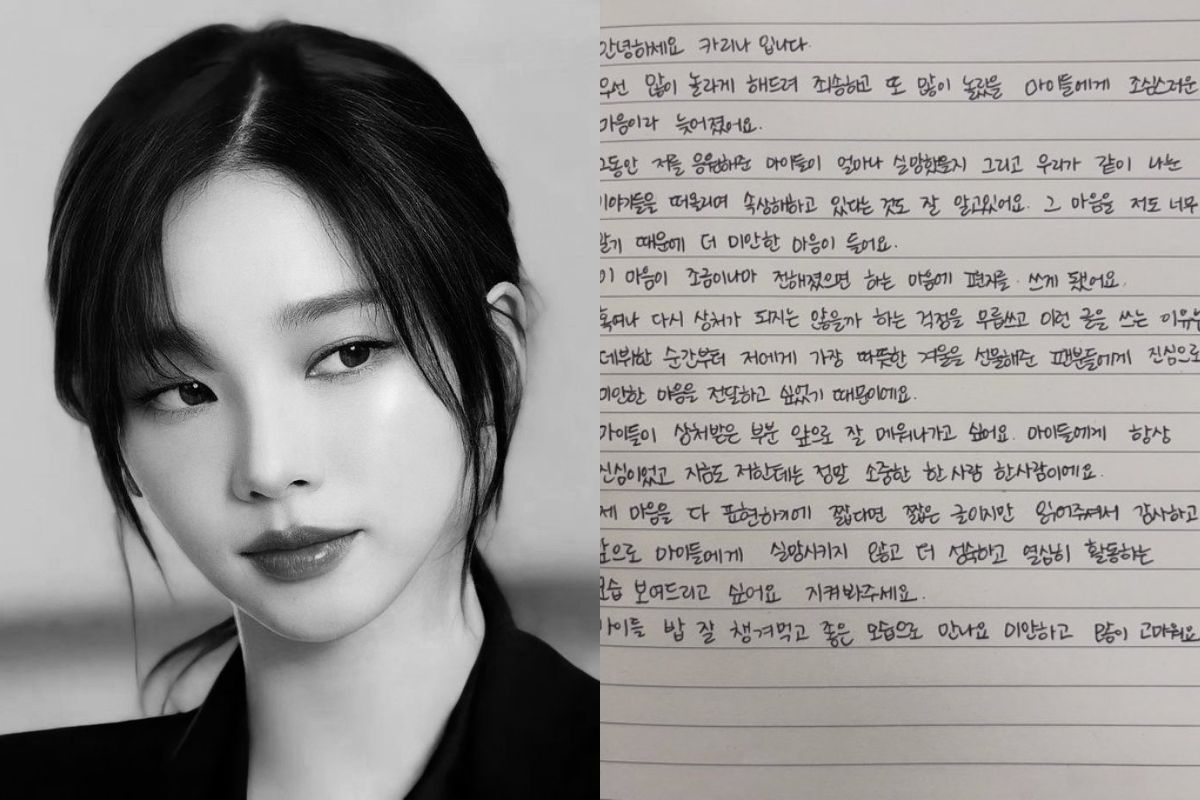 안녕하세요 카리나 입니다.
우선 많이 놀라게 해드려 죄송하고 또 많이 놀랐을 마이들에게 조심스러운
마음이라 늦어졌어요.
그동안 저를 응원해준 마이들이 얼마나 실망했을지 그리고 우리가 같이 나눈
이야기들을 떠올리며 속상해하고 있다는 것도 잘 알고있어요. 그 마음을 저도 너무
알기 때문에 더 미안한 마음이 들어요.
이 마음이 조금이나마 전해졌으면 하는 마음에 편지를 쓰게 됐어요.
혹여나 다시 상처가 되지는 않을까 하는 걱정을 무릅쓰고 이런 글을 쓰는 이유는
데뷔한 순간부터 저에게 가장 따뜻한 겨울을 선물해준 팬분들에게 진심으로
미안한 마음을 전달하고 싶었기 때문이에요.
마이들이 상처받은 부분 앞으로 잘 메워나가고 싶어요. 마이들에게 항상
진심이었고 지금도 저한테는 정말 소중한 한사람 한사람이에요.
제 마음을 다 표현하기에 짧다면 짧은 글이지만 읽어주셔서 감사하고
앞으로 마이들에게 실망시키지 않고 더 성숙하고 열심히 활동하는
모습 보여드리고 싶어요 지켜봐주세요.
마이들 밥 잘 챙겨먹고 좋은 모습으로 만나요 미안하고 많이 고마워요